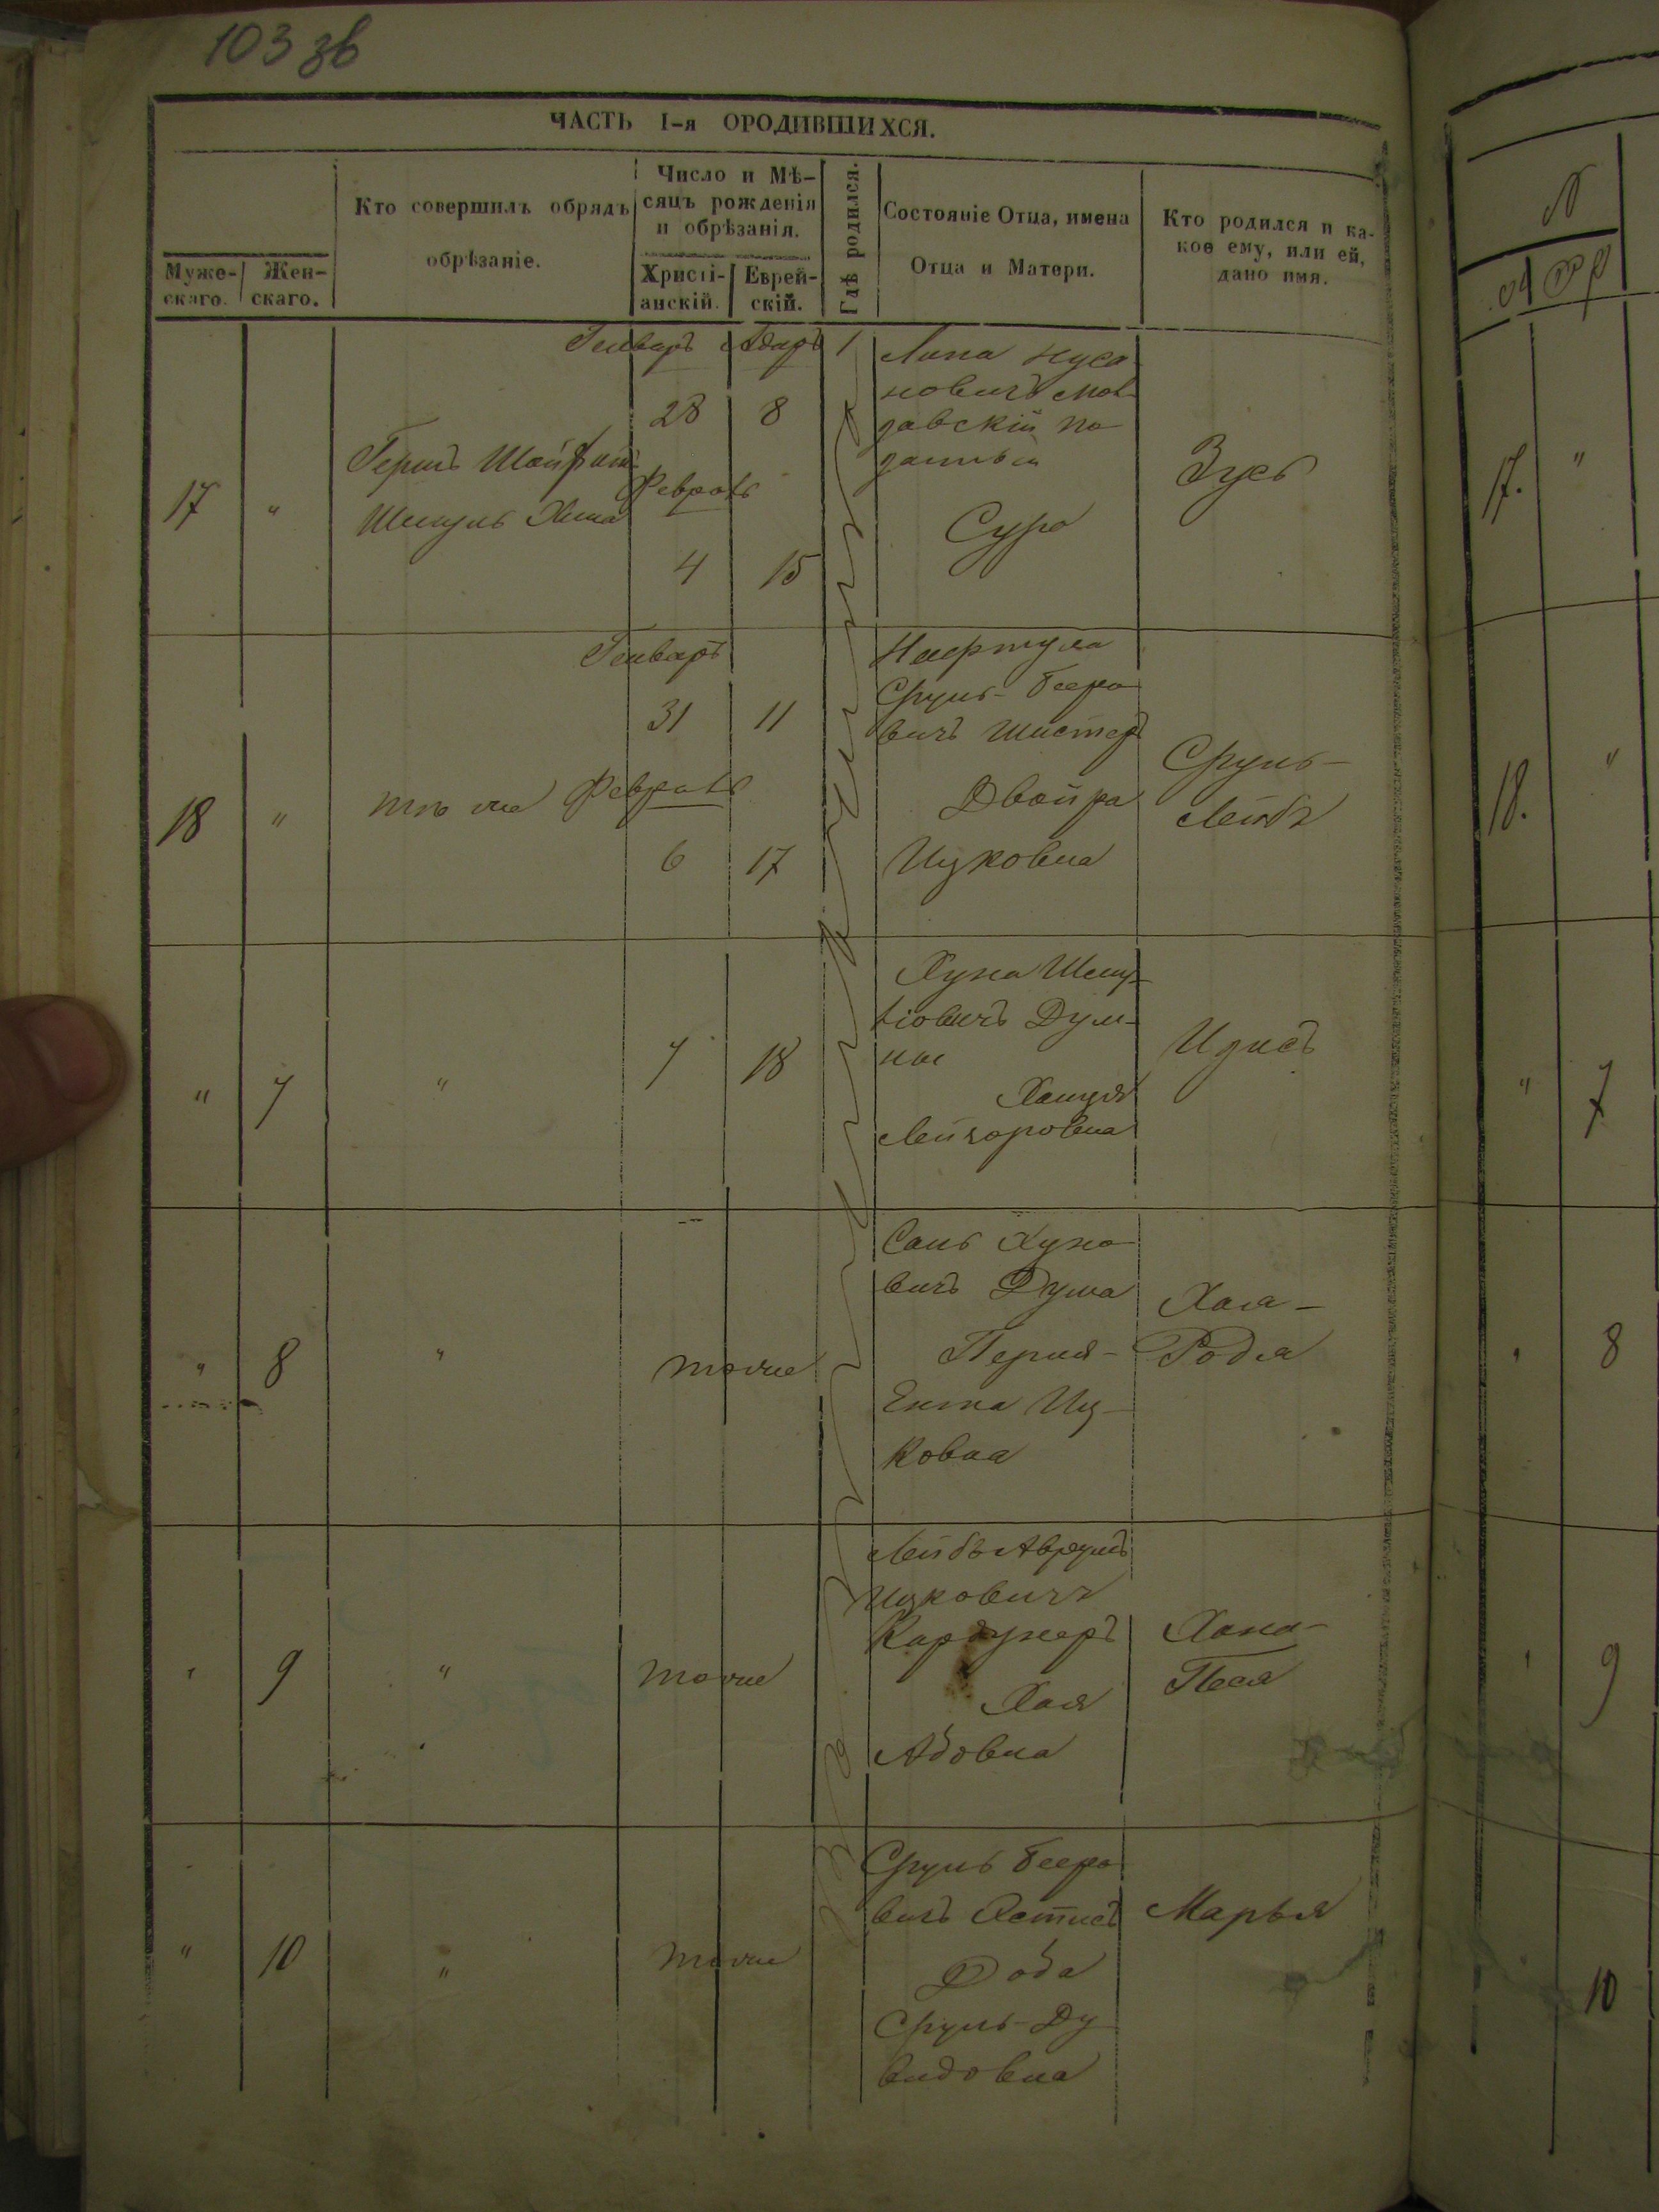 103 зв
ЧАСТЬ I-я ОРОДИВШИХСЯ.
Муже-
скаго.
Жен-
скаго.
Кто совершилъ обрядъ
обрѣзаніе.
Число и Мѣ-
сяцъ рожденія
и обрѣзанія.
Христі-
анскій.
Еврей-
скій.
Гдѣ родился.
Состояніе Отца, имена
Отца и Матери.
Кто родился и ка-
кое ему, или ей,
дано имя.
Генварь Адаръ 1
17 "
Гершъ
Шмуль
28 8
Февраль
4 15
Липа Нуса-
новичъ Мол-
давскій по-
данный
Сура
Зусь
Генварь
18 "
тѣ же
31 11
Февраль
6 17
Нафтула
Сруль-Беро-
вичъ Шистеръ
Двойра
Ицковна
Сруль-
Лейбъ
" 7 "
7 18
Хуна Шму-
ліовичъ
Лейзоровна
" 8 "
тоже
Хуно-
вичъ Дума
Перля-
Ента Иц-
ковна
Хая-
" 9 "
тоже
Лейбъ Аврумъ
Ицковичъ
Хая
Абовна
Хана-
Песя
" 10 "
тоже
Сруль Беро-
вичъ
Доба
Сруль-Ду-
видовна
Марья
17. "
18. "
" 7
" 8
" 9
10